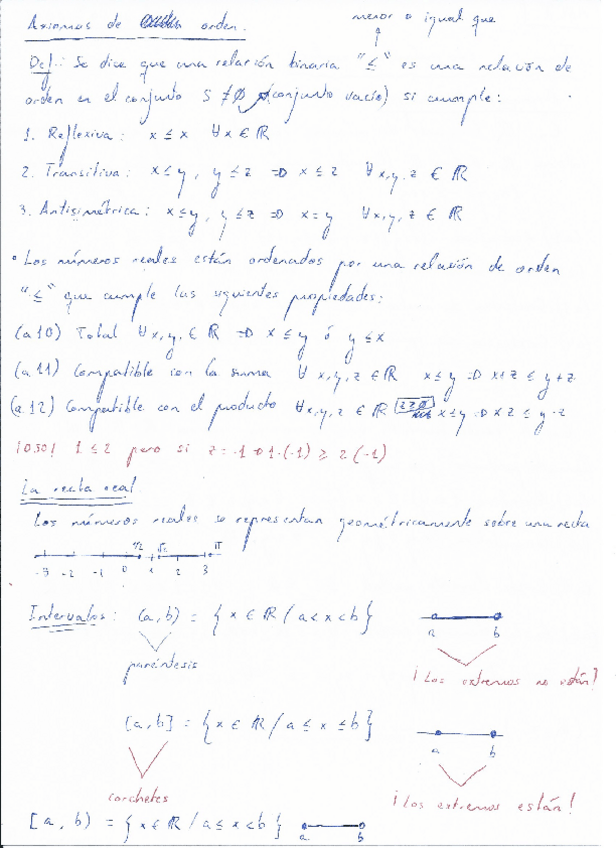 Axiomas de orden.
menor o igual que
Def.: Se dice que una relación binaria "≤" es una relación de
orden en el conjunto S ≠ ∅ (conjunto vacío) si cumple:
1. Reflexiva: x ≤ x ∀x ∈ ℝ
2. Transitiva: x ≤ y, y ≤ z ⇒ x ≤ z ∀x,y,z ∈ ℝ
3. Antisimétrica: x ≤ y, y ≤ z ⇒ x = y ∀x,y,z ∈ ℝ
• Los números reales están ordenados por una relación de orden
"≤" que cumple las siguientes propiedades:
(a.10) Total ∀x,y, ∈ ℝ ⇒ x ≤ y ó y ≤ x
(a.11) Compatible con la suma ∀ x,y,z ∈ ℝ x ≤ y ⇒ x+z ≤ y+z
(a.12) Compatible con el producto ∀x,y,z ∈ ℝ z≥0 x ≤ y ⇒ xz ≤ y·z
¡OJO! 1 ≤ 2 pero si z = -1 ⇒ 1·(-1) ≥ 2(-1)
La recta real
Los números reales se representan geométricamente sobre una recta
1/2 √2 π
-3 -2 -1 0 1 2 3
Intervalos: (a,b) = {x ∈ ℝ / a < x < b}
a b
paréntesis
¡Los extremos no están!
[a,b] = {x ∈ ℝ / a ≤ x ≤ b}
a b
corchetes
¡Los extremos están!
[a, b) = {x ∈ ℝ / a ≤ x < b}
a b